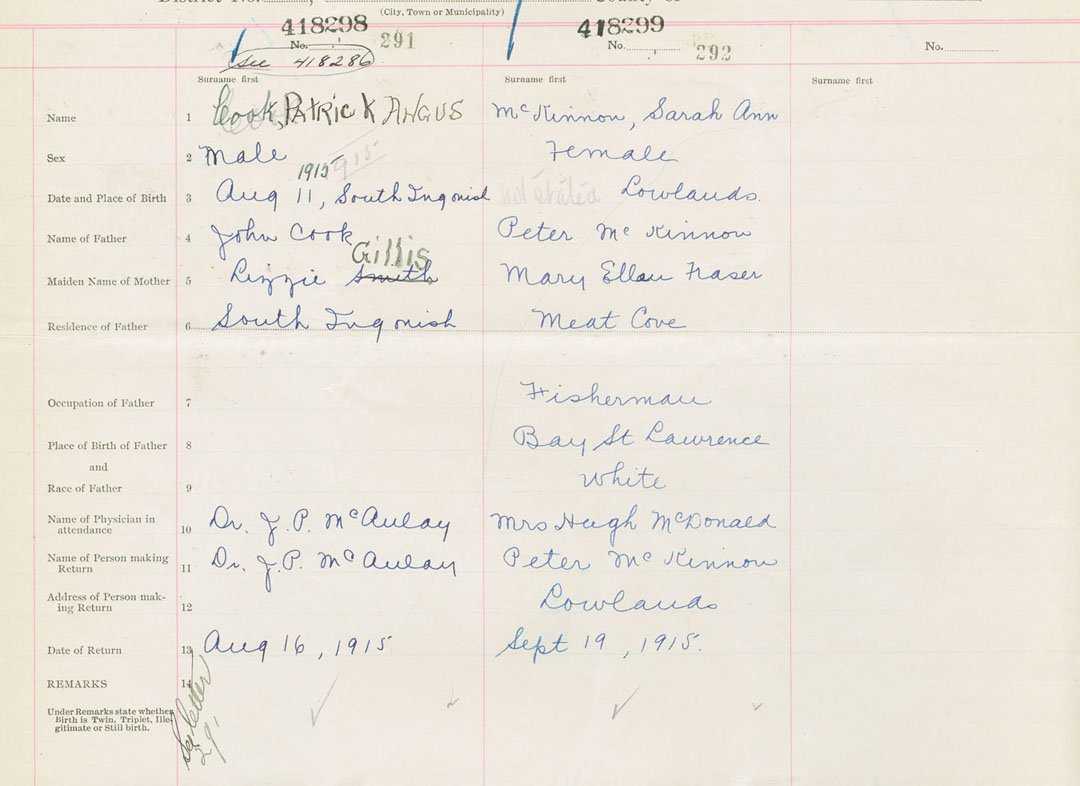 District No. , County of
(City, Town or Municipality)
418298 418299
No. 291 No. 292 No.
See 418286
Surname first Surname first Surname first
Name 1 Cook, PATRICK ANGUS McKinnon, Sarah Ann
Sex 2 Male Female
1915 1915
Date and Place of Birth 3 Aug 11, South Ingonish not stated Lowlands.
Name of Father 4 John Cook Peter McKinnon
Gillis
Maiden Name of Mother 5 Lizzie Smith Mary Ellen Fraser
Residence of Father 6 South Ingonish Meat Cove
Occupation of Father 7 Fisherman
Place of Birth of Father 8 Bay St Lawrence
and
Race of Father 9 White
Name of Physician in
attendance 10 Dr. J. P. McAulay Mrs Hugh McDonald
Name of Person making
Return 11 Dr. J. P. McAulay Peter McKinnon
Address of Person mak-
ing Return 12 Lowlands
Date of Return 13 Aug 16, 1915 Sept 19, 1915.
REMARKS 14
Under Remarks state whether
Birth is Twin, Triplet, Ille-
gitimate or Still birth.
See letter
29